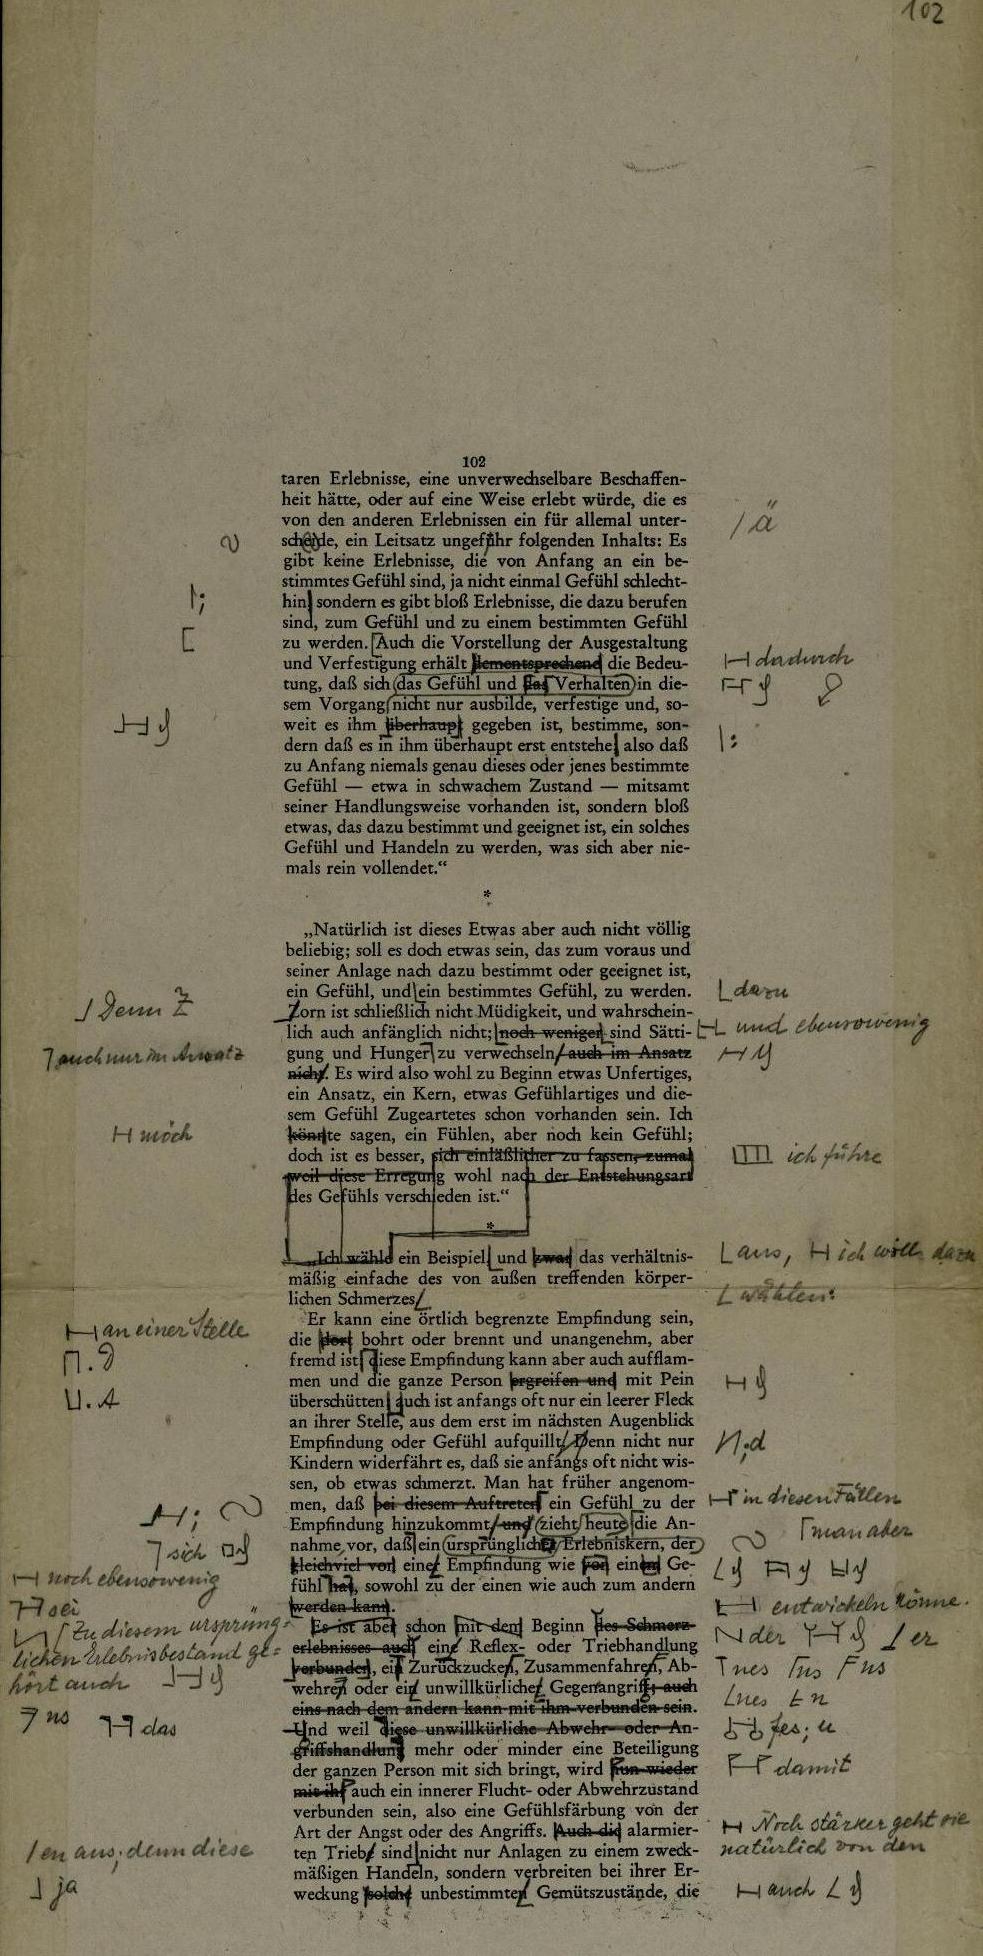 102
102
taren Erlebnisse, eine unverwechselbare Beschaffen-
heit hätte, oder auf eine Weise erlebt würde, die es
von den anderen Erlebnissen ein für allemal unter-
/ä
scheide, ein Leitsatz ungefähr folgenden Inhalts: Es
gibt keine Erlebnisse, die von Anfang an ein be-
stimmtes Gefühl sind, ja nicht einmal Gefühl schlecht-
;
hin, sondern es gibt bloß Erlebnisse, die dazu berufen
sind, zum Gefühl und zu einem bestimmten Gefühl
[
zu werden. Auch die Vorstellung der Ausgestaltung
und Verfestigung erhält dementsprechend die Bedeu-
dadurch
tung, daß sich das Gefühl und das Verhalten in die-
sem Vorgang nicht nur ausbilde, verfestige und, so-
weit es ihm überhaupt gegeben ist, bestimme, son-
dern daß es in ihm überhaupt erst entstehe, also daß
:
zu Anfang niemals genau dieses oder jenes bestimmte
Gefühl — etwa in schwachem Zustand — mitsamt
seiner Handlungsweise vorhanden ist, sondern bloß
etwas, das dazu bestimmt und geeignet ist, ein solches
Gefühl und Handeln zu werden, was sich aber nie-
mals rein vollendet.“
*
„Natürlich ist dieses Etwas aber auch nicht völlig
beliebig; soll es doch etwas sein, das zum voraus und
seiner Anlage nach dazu bestimmt oder geeignet ist,
ein Gefühl, und ein bestimmtes Gefühl, zu werden.
dazu
Denn Z
Zorn ist schließlich nicht Müdigkeit, und wahrschein-
lich auch anfänglich nicht; noch weniger sind Sätti-
und ebensowenig
auch nur im Ansatz
gung und Hunger zu verwechseln, auch im Ansatz
nicht. Es wird also wohl zu Beginn etwas Unfertiges,
ein Ansatz, ein Kern, etwas Gefühlartiges und die-
sem Gefühl Zugeartetes schon vorhanden sein. Ich
möch
könnte sagen, ein Fühlen, aber noch kein Gefühl;
doch ist es besser, sich einläßlicher zu fassen, zumal
ich führe
weil diese Erregung wohl nach der Entstehungsart
des Gefühls verschieden ist.“
*
„Ich wähle ein Beispiel, und zwar das verhältnis-
aus, ich will dazu
mäßig einfache des von außen treffenden körper-
lichen Schmerzes.
wählen:
Er kann eine örtlich begrenzte Empfindung sein,
an einer Stelle
die dort bohrt oder brennt und unangenehm, aber
fremd ist; diese Empfindung kann aber auch aufflam-
. D
men und die ganze Person ergreifen und mit Pein
. A
überschütten; auch ist anfangs oft nur ein leerer Fleck
an ihrer Stelle, aus dem erst im nächsten Augenblick
Empfindung oder Gefühl aufquillt. Denn nicht nur
;d
Kindern widerfährt es, daß sie anfangs oft nicht wis-
sen, ob etwas schmerzt. Man hat früher angenom-
men, daß bei diesem Auftreten ein Gefühl zu der
in diesen Fällen
;
Empfindung hinzukommt, und zieht heute die An-
man aber
sich
nahme vor, daß ein ursprünglicher Erlebniskern, der
gleichviel von einer Empfindung wie von einem Ge-
noch ebensowenig
fühl hat, sowohl zu der einen wie auch zum andern
sei
werden kann.
entwickeln könne.
[Zu diesem ursprüng-
Es ist aber schon mit dem Beginn des Schmerz-
der er
lichen Erlebnisbestand ge-
erlebnisses auch eine Reflex- oder Triebhandlung
hört auch
verbunden, ein Zurückzucken, Zusammenfahren, Ab-
nes ns ns
wehren oder ein unwillkürlicher Gegenangriff; auch
nes n
ns das
eins nach dem andern kann mit ihm verbunden sein.
Und weil diese unwillkürliche Abwehr- oder An-
fes; u
griffshandlung mehr oder minder eine Beteiligung
der ganzen Person mit sich bringt, wird nun wieder
damit
mit ihr auch ein innerer Flucht- oder Abwehrzustand
verbunden sein, also eine Gefühlsfärbung von der
Art der Angst oder des Angriffs. Auch die alarmier-
Noch stärker geht sie
en aus; denn diese
ten Triebe sind nicht nur Anlagen zu einem zweck-
natürlich von den
mäßigen Handeln, sondern verbreiten bei ihrer Er-
ja
weckung solche unbestimmten Gemütszustände, die
auch